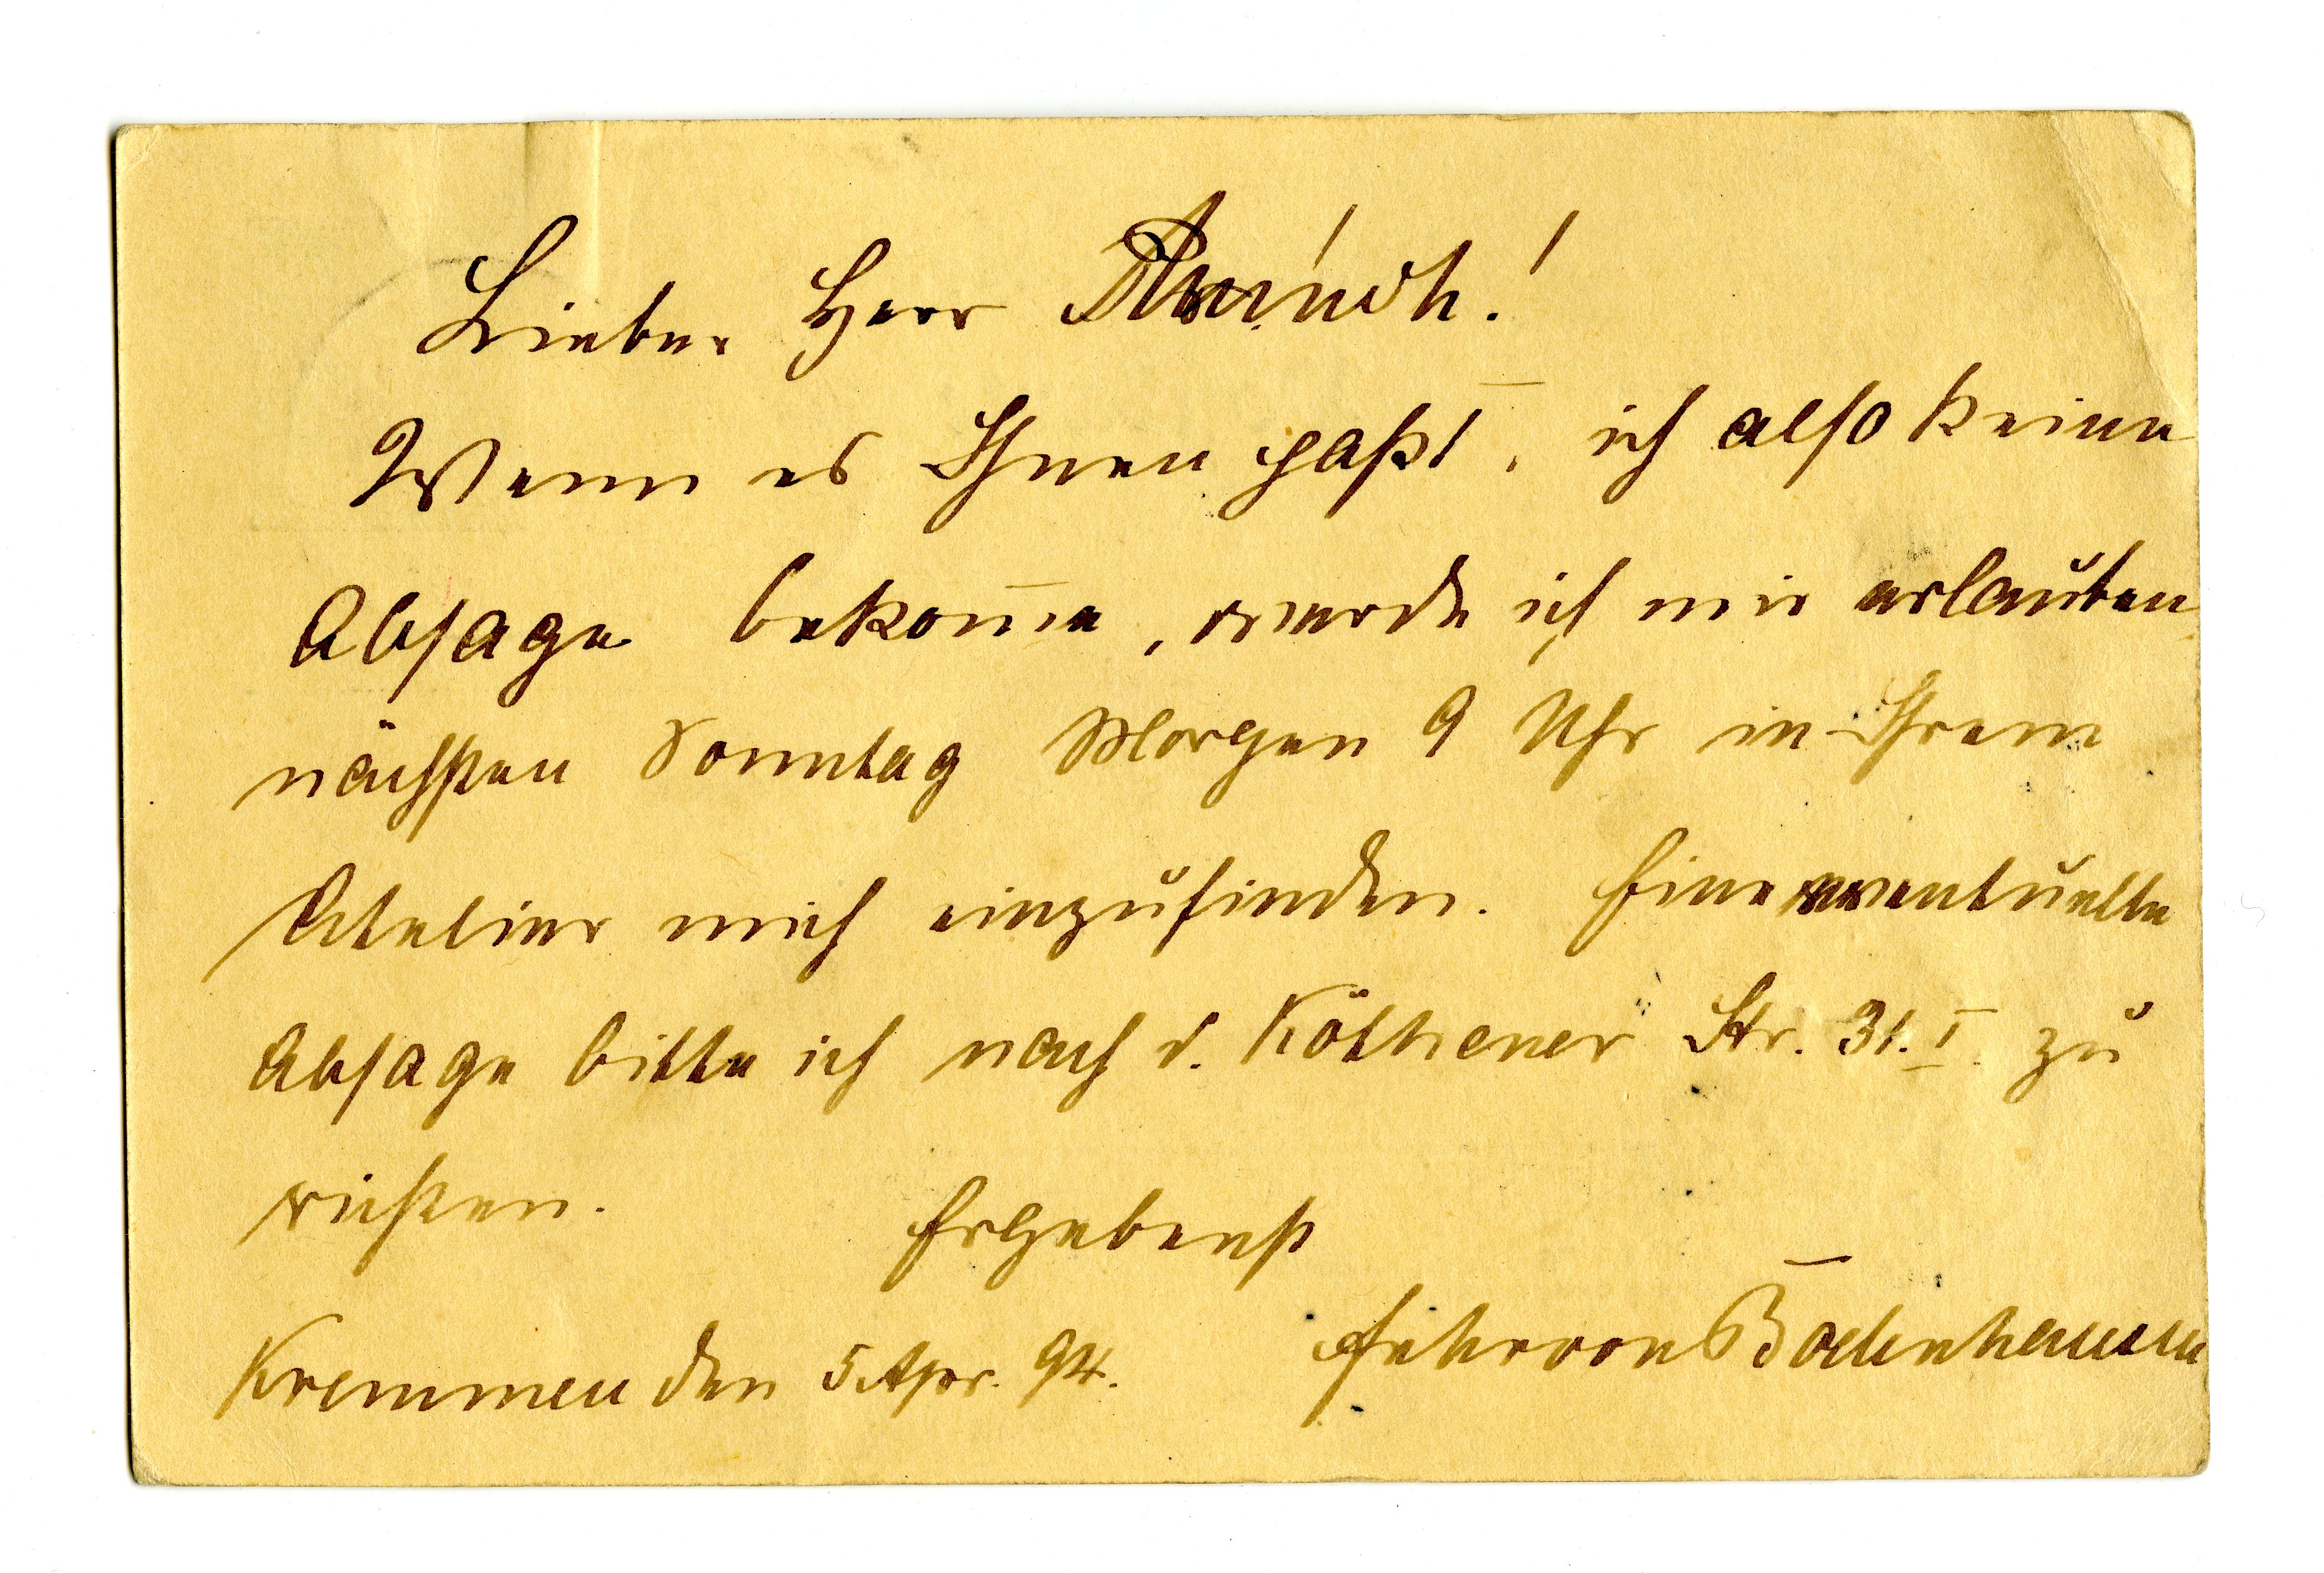 Lieber Herr Arndt!
Wenn es Ihnen paßt, ich also keine
Absage bekom̅e, werde ich mir erlauben
nächsten Sonntag Morgen 9 Uhr in Ihrem
Atelier mich einzufinden. Eine eventuelle
Absage bitte ich nach d. Köthener Str. 31. I. zu
richten.
Ergebenst
Kremmen den 5 Apr. 94. von Bodenhausen